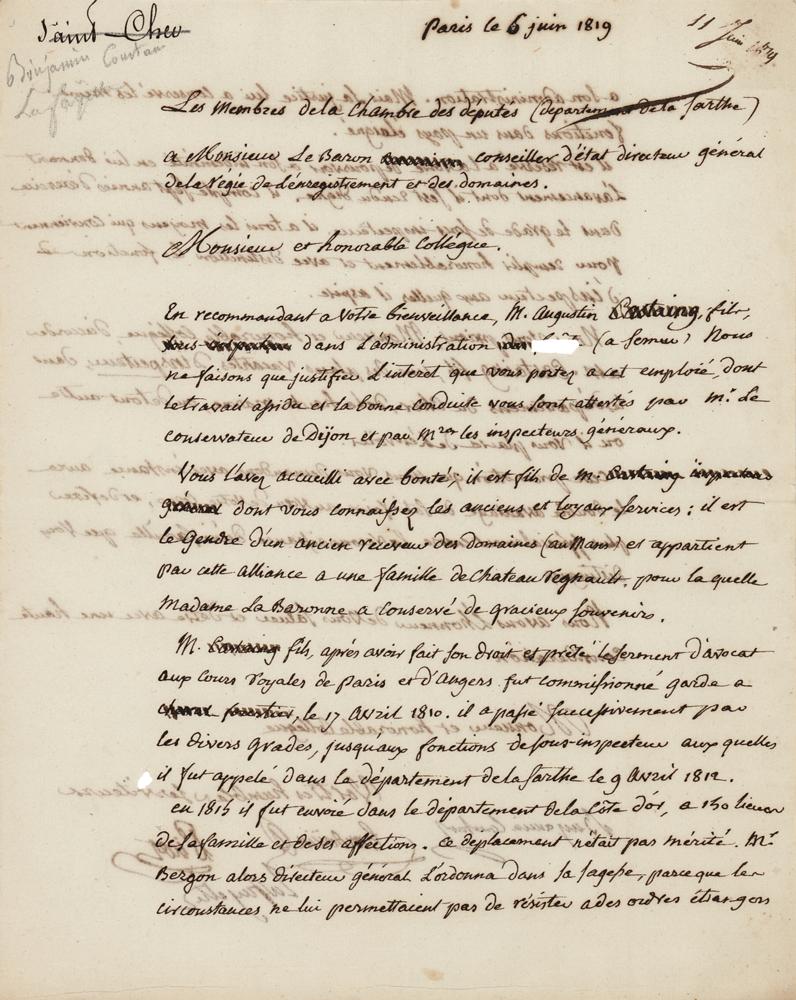 Saint-Cher
Paris le 6 juin 1819
11 Juin 1819
Benjamin Constant
Lafayette
Les Membres de la Chambre des députés (département de la Sarthe)
a Monsieur Le Baron conseiller d'état directeur général
de la régie de l'énregistrement et des domaines.
Monsieur et honorable Collégue.
En recommandant a votre bienveillance, M. Augustin Castaing, fils,
sous inspecteur dans L'administration (a semur) Nous
ne faisons que justifier L'intéret que vous portez a cet emploié, dont
le travail assidu et la bonne conduite vous sont attestés par mr. Le
conservateur de Dijon et par Mrs les inspecteurs généraux.
Vous l'avez accueilli avec bonté; il est fils de m. Castaing inspecteur
général dont vous connaissez les anciens et loyaux services: il est
le Gendre d'un ancien receveur des domaines (au Mans) et appartient
par cette alliance a une famille de Chateau Regnault, pour la quelle
Madame La Baronne a conservé de gracieux souvenirs.
M. Castaing fils, aprés avoir fait son droit et prété le serment d'avocat
aux Cours royales de Paris et d'Angers fut commissionné garde a
cheval forestier, le 17 Avril 1810. il a passé successivement par
les divers grades, jusqu'aux fonctions de sous-inspecteur aux quelles
il fut appelé dans le département de la Sarthe le 9 Avril 1812.
en 1815 il fut envoié dans le département de la Côte d'or, a 130 lieues
de sa famille et de ses affections. ce déplacement n'était pas mérité. Mr.
Bergon alors directeur général L'ordonna dans sa sagesse, parce que les
circonstances ne lui permettaient pas de résister a des ordres étrangers